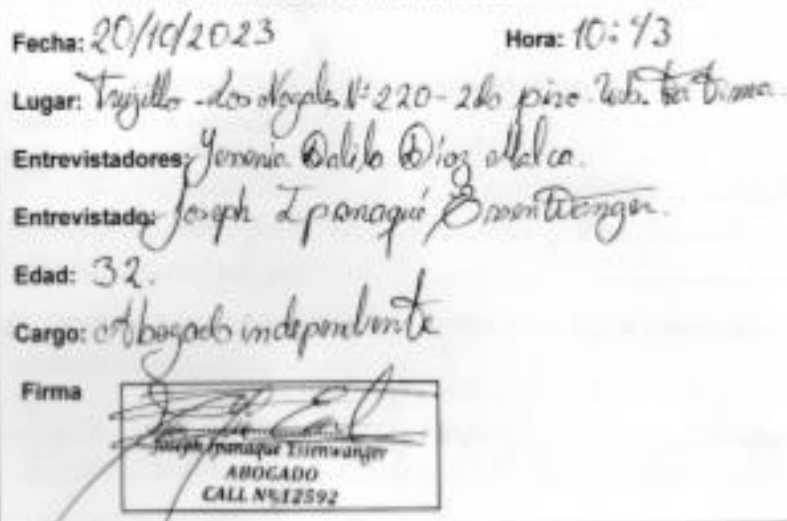 Fecha: 20/10/2023 Hora: 10:43
Lugar: Trujillo - Los Nogales N° 220 - 2do piso. Urb.
Entrevistadores: Yesenia Dalila Díaz Malca.
Entrevistado: Joseph Ipanaqué Eisenwanger.
Edad: 32.
Cargo: Abogado independiente
Firma
Joseph Ipanaque Eisenwanger
ABOGADO
CALL N° 12592